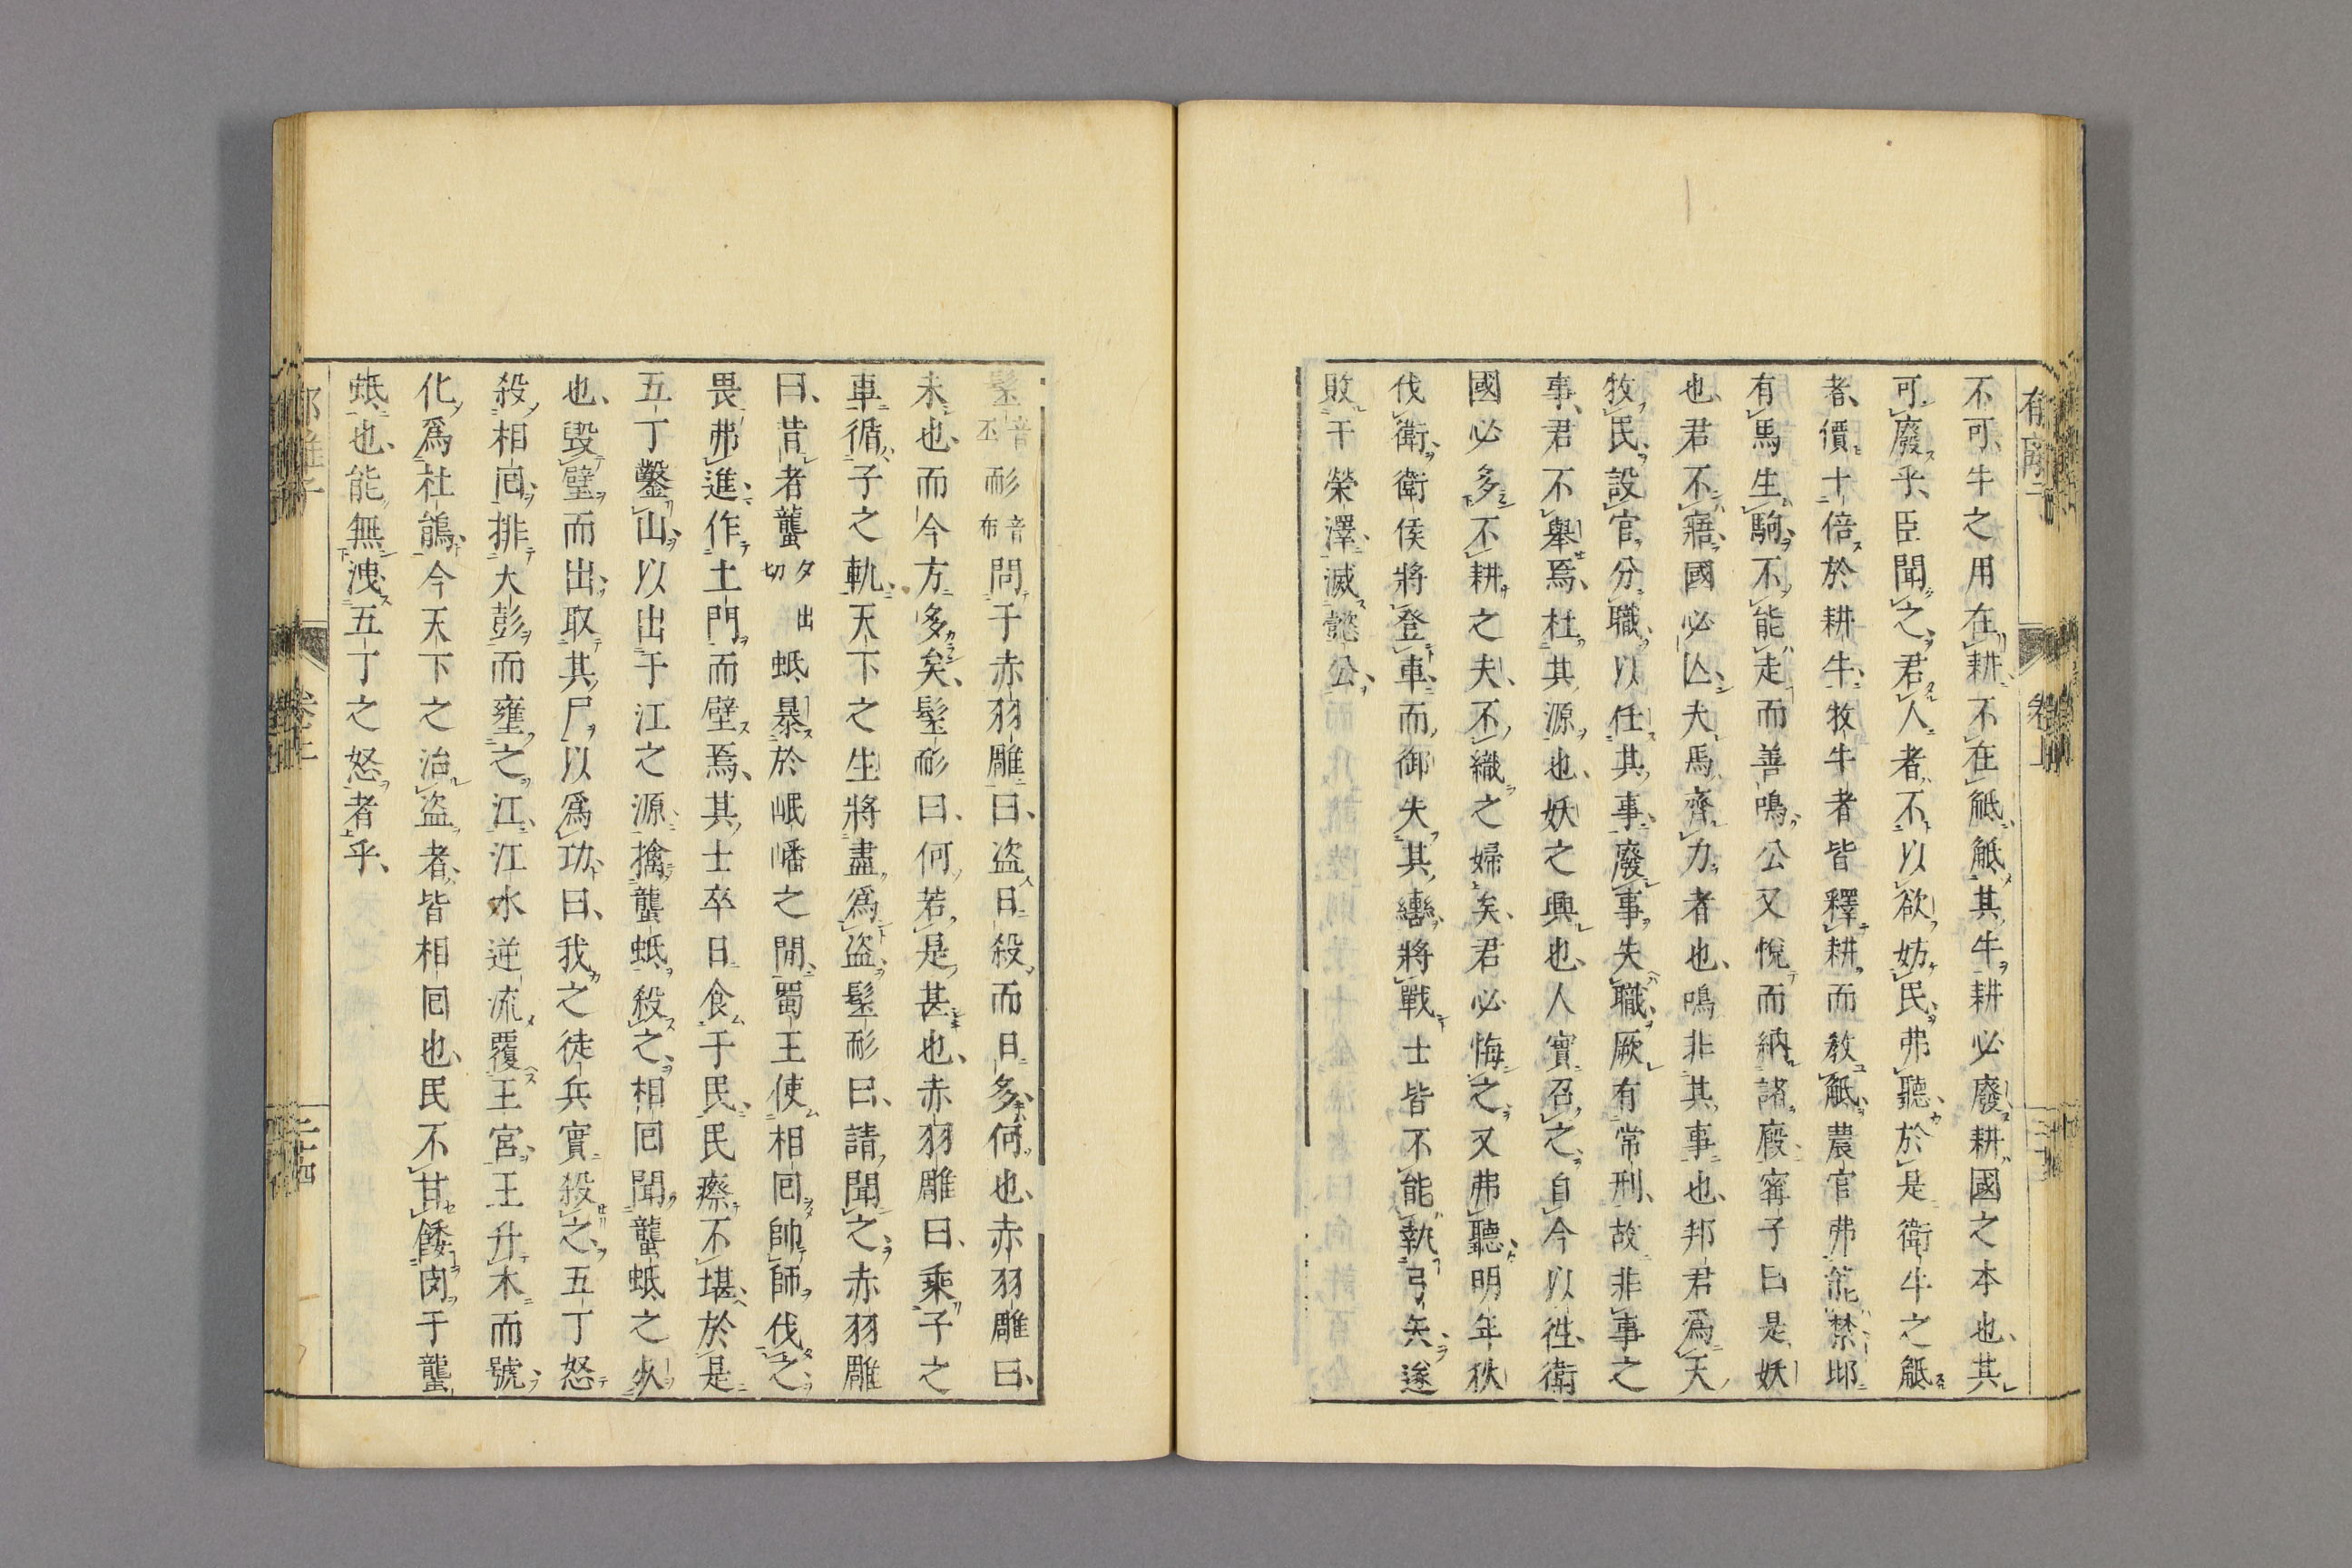 不可、牛之用在耕、不在觝、觝其牛耕必廢、耕國之本也、其
可廢乎、臣聞之、君人者、不以欲妨民、弗聽、於是衛牛之觝
者、價十倍於耕牛、牧牛者皆釋耕而教觝、農官弗能禁、邶
有馬生駒、不能走而善鳴、公又悅而納諸廄、甯子曰是妖
也、君不寤、國必亾、夫馬、齊力者也、鳴非其事也、邦君爲天
牧民、設官分職、以任其事、廢事失職、厥有常刑、故非事之
事、君不舉焉、杜其源也、妖之興也、人實召之、自今以徃、衛
國必多不耕之夫、不織之婦矣、君必悔之、又弗聽、明年狄
伐衛、衛侯將登車、而御失其轡、將戰、士皆不能執弓矢、遂
敗于榮澤、滅懿公、
髬音丕耏音布問于赤羽雕曰、盜日殺而日多、何也、赤羽雕曰、
未也、而今方多矣、髬耏曰、何若是甚也、赤羽雕曰、乘子之
車、循子之軌、天下之生將盡爲盜、髬耏曰、請聞之、赤羽雕
曰、昔者蠪夕出切蚳暴於岷嶓之閒、蜀王使相回帥師伐之、
畏弗進、作土門而壁焉、其士卒日食于民、民瘵不堪、於是
五丁鑿山、以出于江之源、擒蠪蚳殺之、相回聞蠪蚳之火
也、毀壁而出、取其尸以爲功、曰、我之徒兵實殺之、五丁怒
殺相回、排大彭而壅之江、江水逆流覆王宮、王升木而號、
化爲社鵑、今天下之治盜者、皆相回也、民不甘餧肉于蠪
蚳也、能無洩五丁之怒者乎、
卷上